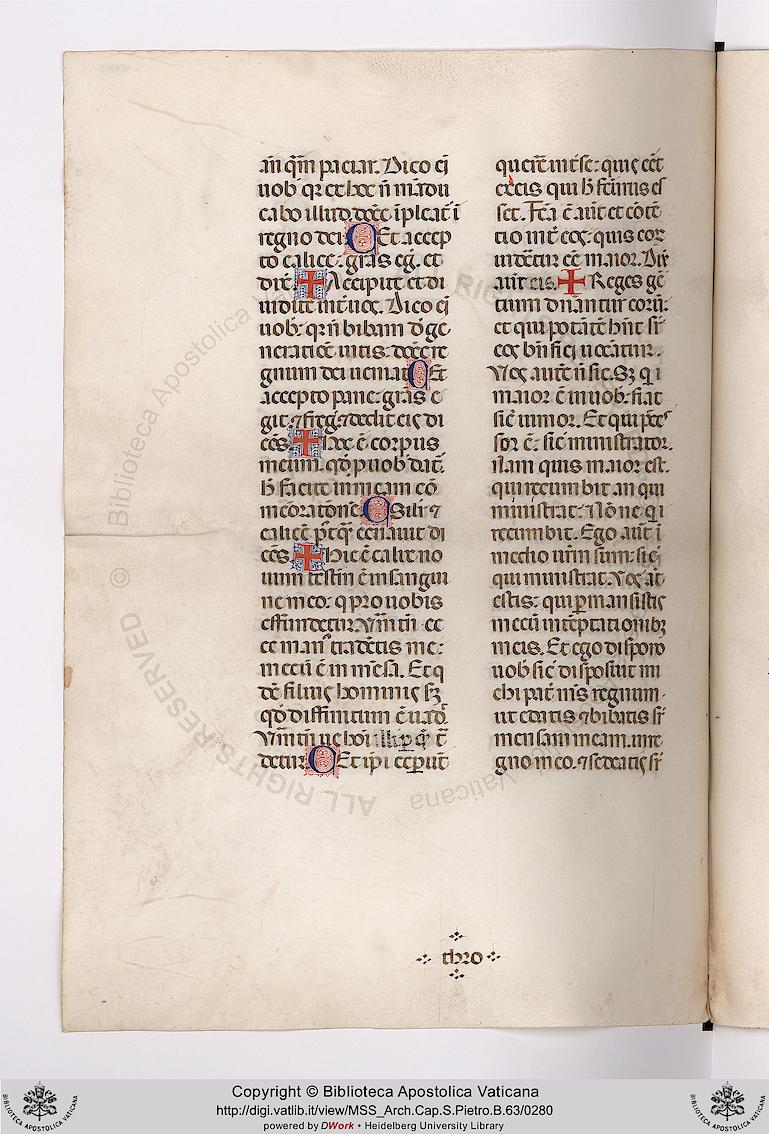 añ q̃m paciar. Dico eĩ
uob̃ qr ex hoc ñ mãdu
cabo illud. donec ĩpleat᷑ ĩ
regno dei. Et accep
to calice: grãs eg̃. et
dix̃. ✚ Accipite et di
uidite int̃ uos. Dico eĩ
uob̃. qr ñ bibam de ge
neratiõe uitis: donec re
gnum dei ueniat. Et
accepto pane: grãs e
git. ⁊ freg̃. ⁊ dedit eis di
cẽs. ✚ Hoc ẽ corpus
meum. qđ p uob̃ dat᷑.
h̃ facite in meam cõ
memorationẽ. Sili ⁊
calicẽ. postq̃ cenauit di
cẽs. ✚ Hic ẽ calix no
uum testm̃ ẽ in sangui
ne meo: q pro uobis
effundetur. Ver̃ tñ. ec
ce man᷒ tradẽtis me:
mecũ ẽ in mẽsa. Et q
dẽ filius hominis sz̃
qđ diffinitum ẽ uadit.
Ver̃ tñ ue hoi illi. p quẽ t̃
detur. Et ip̃i ceperũt
querẽ int̃ se: quis eẽt
ex eis qui h̃ fcũrus es
set. Fc̃a ẽ aũt et cõtẽ
tio int̃ eos: quis eor̃
uideretur eẽ maior. Dix̃
aũt eis. ✚ Reges gẽ
tium dnãntur eor̃:
et qui potãtẽ hñt sr̃
eos bñfici uocãtur.
Vos autẽ ñ sic. Sz q i
maior ẽ in uob̃. fiat
sic̃ iunior. Et qui p̃ces
sor ẽ: sic̃ ministrator.
Nam quis maior est.
qui recumbit. an qui
ministrat? Nõne q i
recumbit. Ego aũt ĩ
medio ur̃m sum: sic̃
qui ministrat. Vos aũt
estis: qui p mansistis
mecũ in tẽptationibz
meis. Et ego dispono
uob̃ sic̃ disposuit mi
chi pat̃ ms̃ regnum.
ut edatis ⁊ bibatis sr̃
mensam meam. in re
gno meo. ⁊ sedeatis sr̃
thro
© Biblioteca Apostolica Vaticana ALL RIGHTS RESERVED
Copyright © Biblioteca Apostolica Vaticana
http://digi.vatlib.it/view/MSS_Arch.Cap.S.Pietro.B.63/0280
powered by DWork • Heidelberg University Library